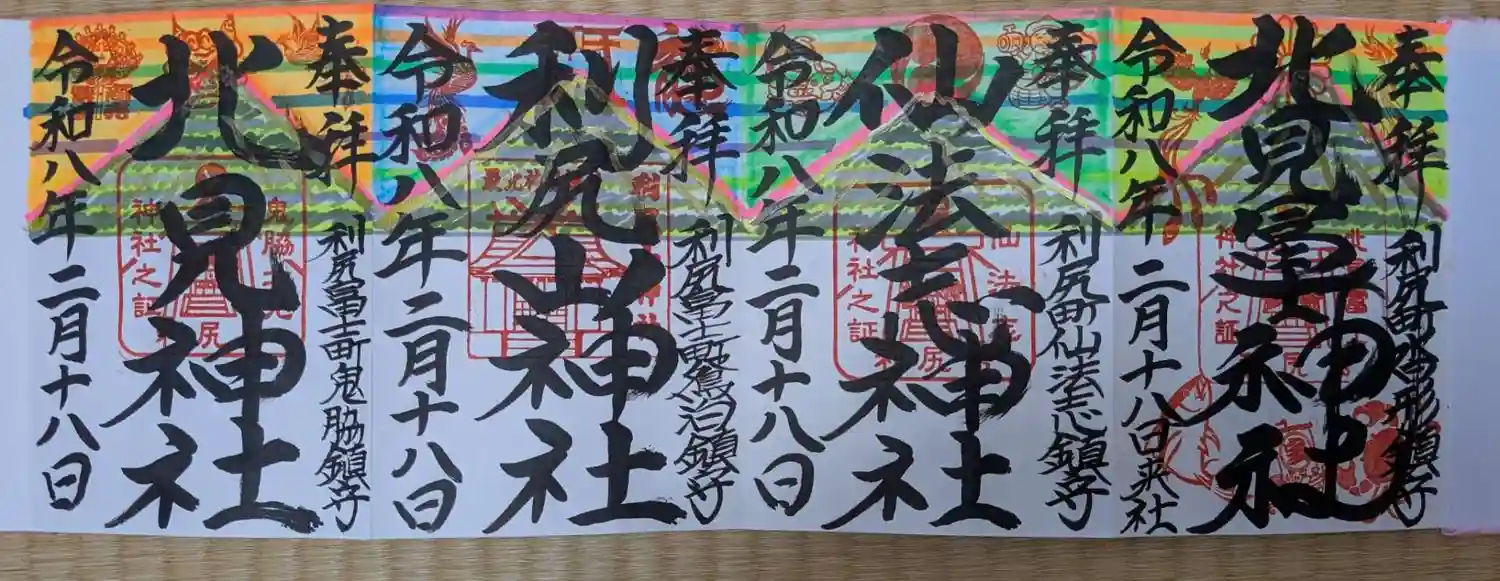 奉拝
利尻町沓形鎮守
北見冨士神社
令和八年二月十八日来社
奉拝
利尻町仙法志鎮守
仙法志神社
令和八年二月十八日
奉拝
利尻富士町鴛泊鎮守
利尻山神社
令和八年二月十八日
奉拝
利尻富士町鬼脇鎮守
北見神社
令和八年二月十八日
神社之証
神社之証
神社之証